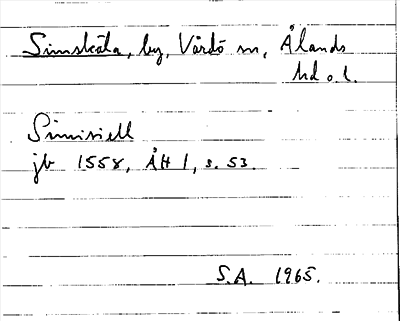 Simskäla, by, Vårdö sn, Ålands
hd o. l.
Simisiell
jb 1558, ÅH 1, s. 53.
S.A. 1965.